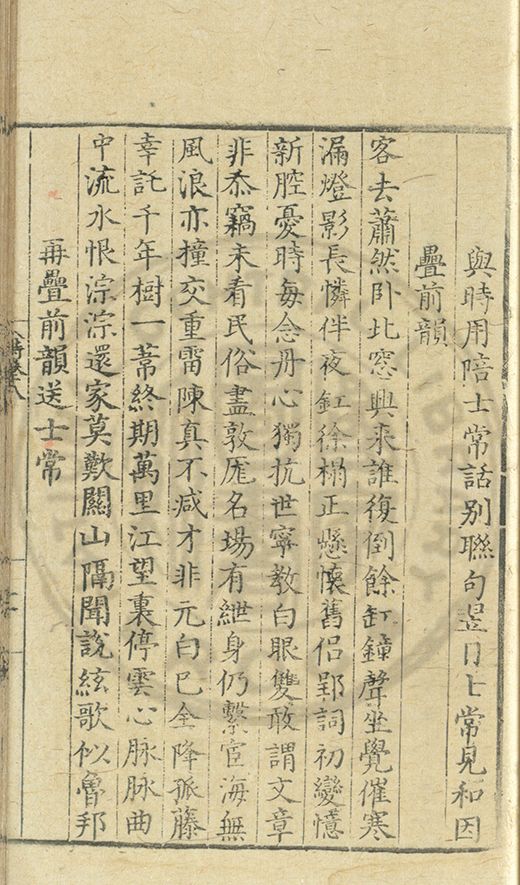 與時用陪士常話別聯句翌日士常見和因
疊前韻
客去蕭然卧北窓興來誰復倒餘缸鐘聲坐覺催寒
漏燈影長憐伴夜釭徐榻正懸懷舊侣郢詞初變憶
新腔憂時每念丹心獨抗世寧教白眼雙敢謂文章
非忝竊未看民俗盡敦厖名場有紲身仍繫宦海無
風浪亦撞交重雷陳真不减才非元白巳全降孤藤
幸託千年樹一葦終期萬里江望裏停雲心脉脉曲
中流水恨淙淙還家莫歎關山隔聞說絃歌似魯邦
再疊前韻送士常